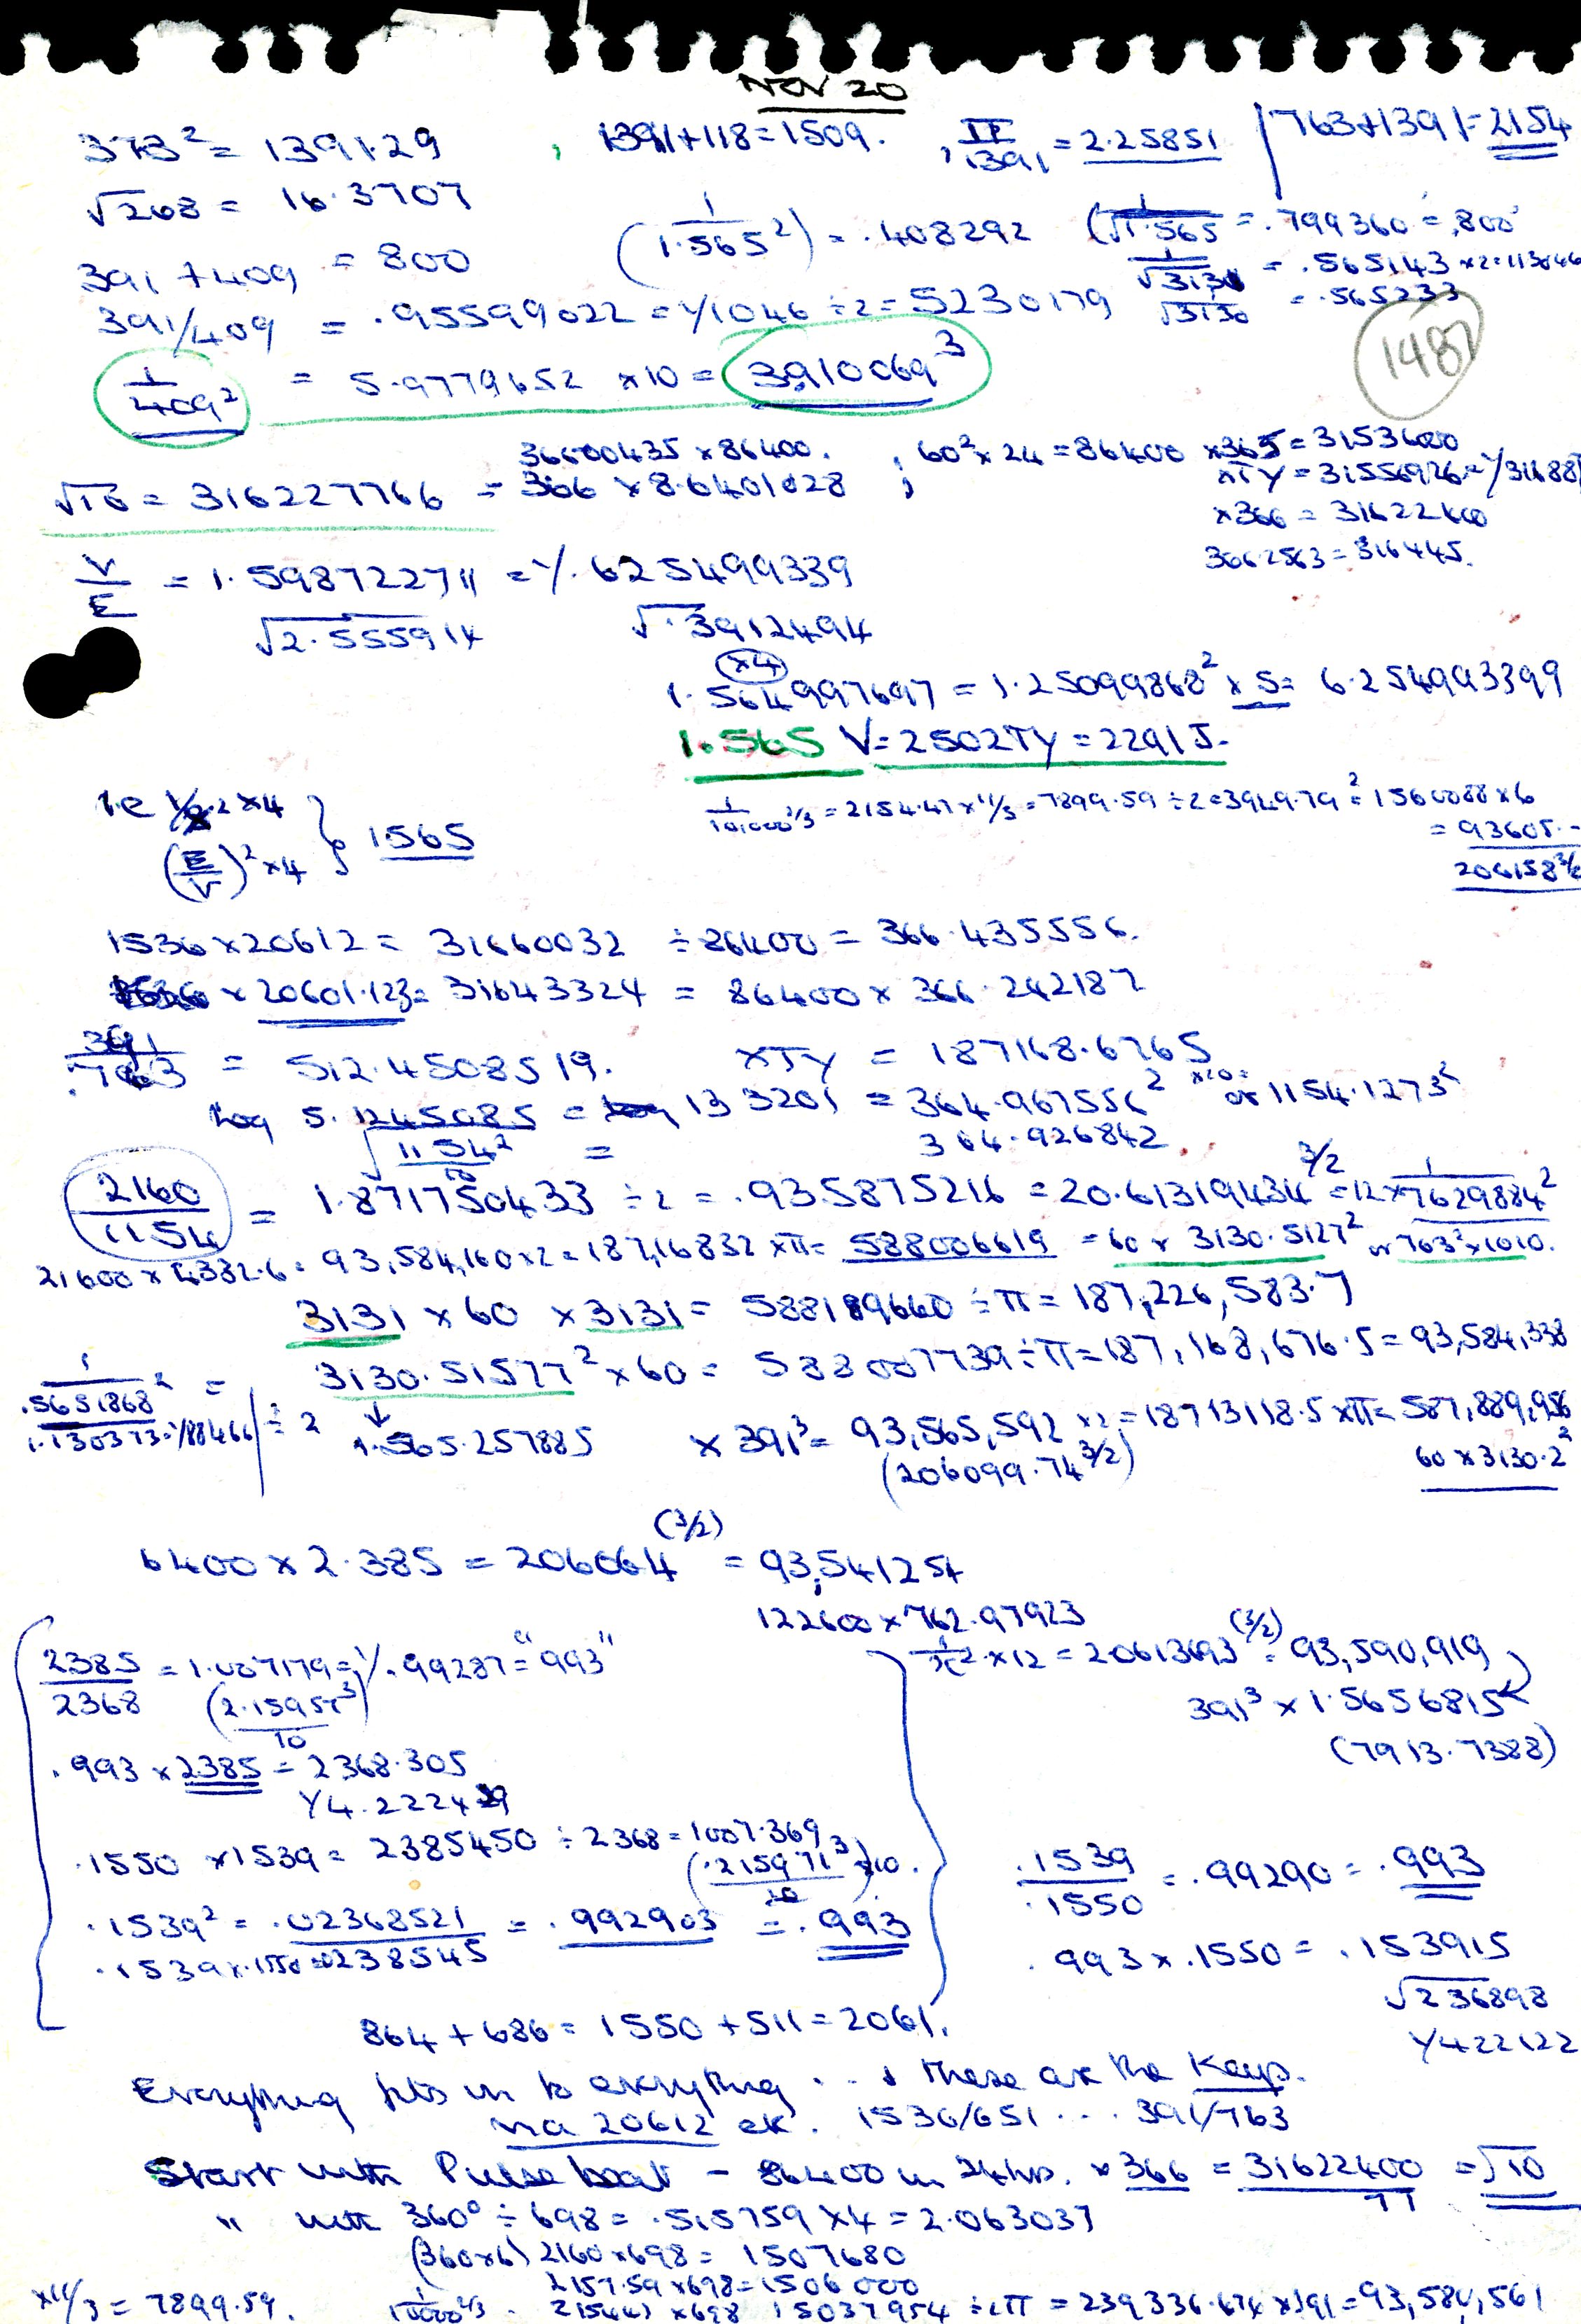 NOV 20
373² = 1391.29 , 1391+118=1509. , II/1391 = 2.25851 763+1391=2154
√268 = 16.3707
(1/1.565²) = .408292 (1/√1.565 = .799360 = .800
391 + 409 = 800
1/√3131 = .565143 ×2=113046
391/409 = .95599022 = 1/1046 ÷2=5230179 √3130 = .565233
1487
1/409² = 5.9779652 ×10 = 3910069³
36600435 × 86400. ; 60²×24=86400 ×365=3153600
√10 = 316227766 = 366 × 8.6401028 ×TY = 31556926=1/31688
×366 = 31622400
3662563=316445.
V/E = 1.598722711 = 1/.625499339
√2.555914 √.3912494
×4
1.564997697 = 1.25099868² × 5 = 6.254993399
1.565 V=2502TY=2291J.
ie 1/8.2 ×4
(E/V)² ×4 } 1565
= 2154.47 × 11/3 = 7899.59 ÷2=3949.79² = 1560088 × 6
= 93605..
206158 3/2
1536 × 20612 = 31660032 ÷ 86400 = 366.435556.
1536 × 20601.123= 31643324 = 86400 × 366.242187
391/.763 = 512.4508519. ×TY = 187168.6765
Log 5.1245085 = 133201 = 364.967556² or 1154.1273²
√1154²/10 = 364.926842
2160/1154 = 1.871750433 ÷2 = .935875216 = 20.61319434 3/2 = 12 × 1/7629884²
21600 × 4332.6 = 93,584,160×2=187,16832 ×π= 588006619 = 60 × 3130.5127² or 763²×1010.
3131 × 60 × 3131 = 588189660 ÷ π = 187,226,583.7
1/.5651868² = 3130.51577² × 60 = 588007739 ÷ π = 187,168,676.5 = 93,584,338
1.130373=1/88466 ÷ 2 ↓ 1.565.257885 × 391³ = 93,565,592 ×2=18713118.5 ×π= 587,889,956
(206099.74 3/2) 60 × 3130.2²
6400 × 2.385 = 206064 (3/2) = 93,541254
122600 × 762.97923
2385/2368 = 1.007179=1/.99287="993" 1/π² ×12 = 20613693 (3/2) = 93,590,919
(2.15957³)/10 391³ × 1.5656815
.993 × 2385 = 2368.305 (7913.7388)
1/4.222429
.1550 × 1539 = 2385450 ÷ 2368 = 1007.369
(.215971³) ×10.
.1539/.1550 = .99290 = .993
.1539² = .02368521/.1539×.1550=0238545 = .992903 = .993
.993 × .1550 = .153915
√236898
1/422122
864 + 686 = 1550 + 511 = 2061.
Everything fits in to everything ... & these are the Keys.
via 20612 etc. 1536/651 ... 391/763
Start with Pulse beat - 86400 in 24hrs. × 366 = 31622400 = √10
" with 360° ÷ 698 = .515759 × 4 = 2.063037
(360×6) 2160 × 698 = 1507680
2157.59 × 698 = 1506000
×11/3 = 7899.59. 215443 × 698 15037954 ÷ 2π = 239336.674 × 391 = 93,580,561